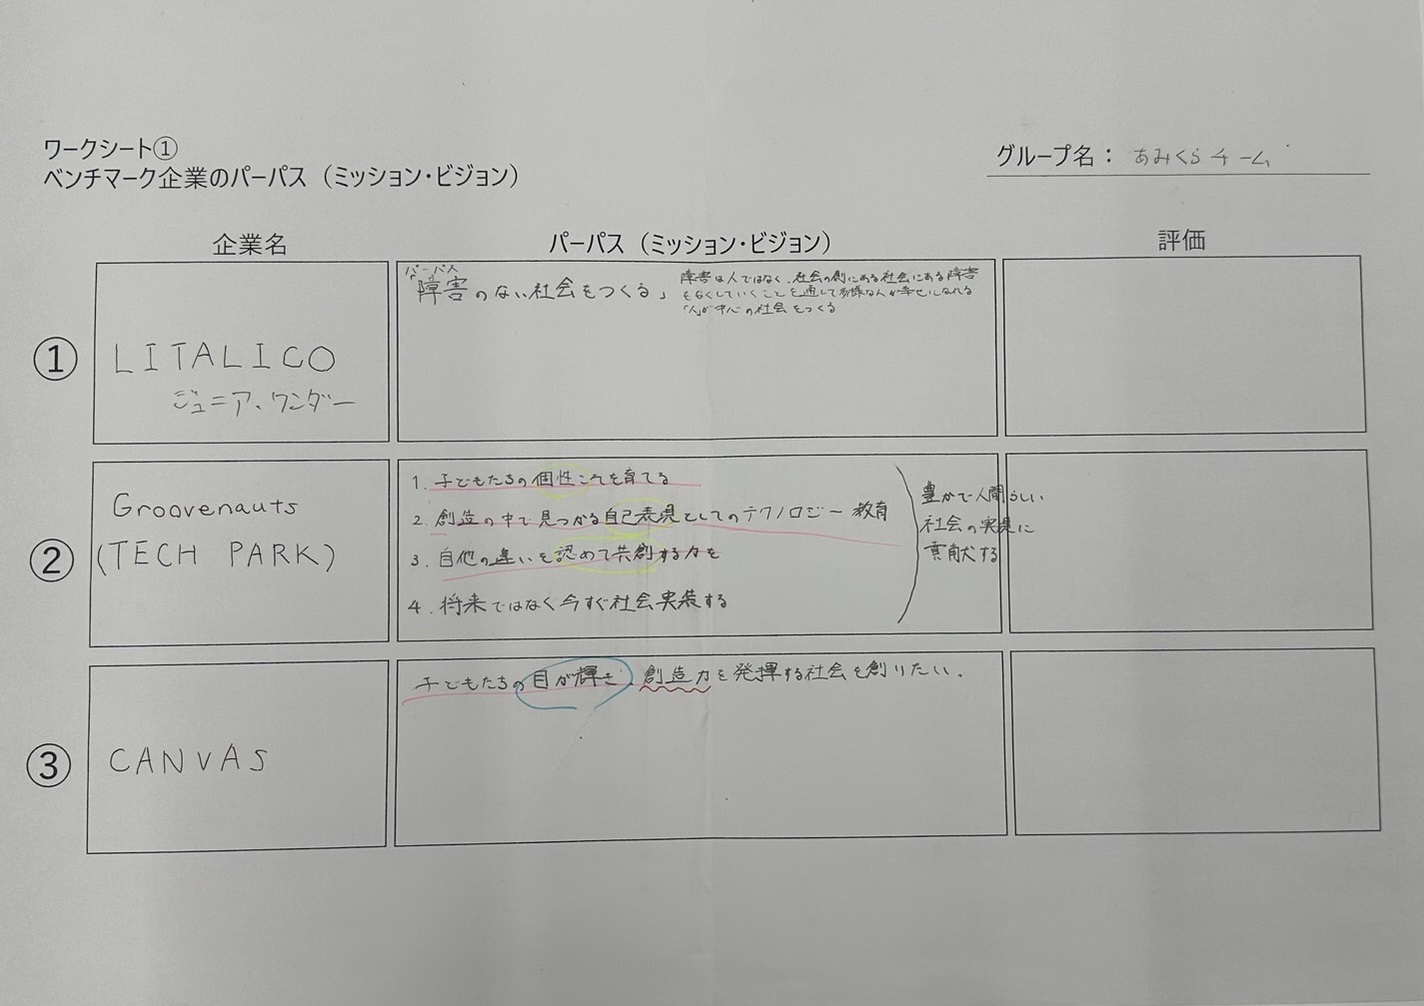 ワークシート①
ベンチマーク企業のパーパス（ミッション・ビジョン）
グループ名： あみくらチーム
企業名
パーパス（ミッション・ビジョン）
評価
①
LITALICO
ジュニア、ワンダー
パーパス
「障害のない社会をつくる」
障害は人ではなく、社会の側にある社会にある障害
をなくしていくことを通して多様な人が幸せになれる
「人」が中心の社会をつくる
②
Groovenauts
(TECH PARK)
1. 子どもたちの個性こそを育てる
2. 創造の中で見つかる自己表現としてのテクノロジー教育
3. 自他の違いを認めて共創する力を
4. 将来ではなく今すぐ社会実装する
豊かで人間らしい
社会の実現に
貢献する
③
CANVAS
子どもたちの目が輝き、創造力を発揮する社会を創りたい.